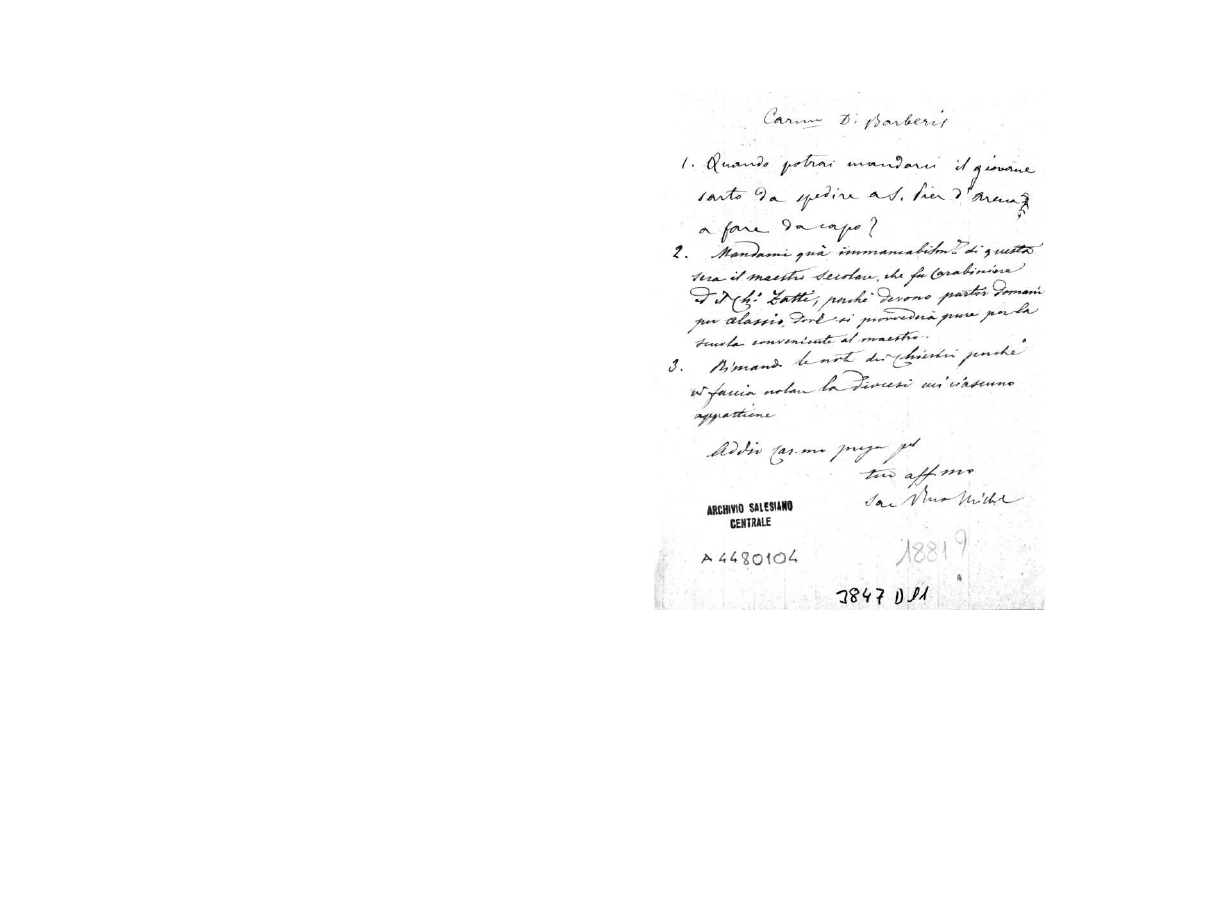 Car.mo D. Barberis
1. Quando potrai mandarci il giovane
sarto da spedire a S. Pier d'Arena
a fare da capo?
2. Mandami quà immancabilm.e di questa
sera il maestro secolare, che fu Carabiniere
ed il Ch.o Zatti, perchè devono partir domani
per Alassio, dove si provvederà pure per la
scuola conveniente al maestro.
3. Rimando le note dei Chierici perchè
si faccia notare la Diocesi cui ciascuno
appartiene
Addio Car.mo prega pel
tuo aff.mo
Sac Rua Michel
ARCHIVIO SALESIANO
CENTRALE
A 4480104
1881?
3847 D